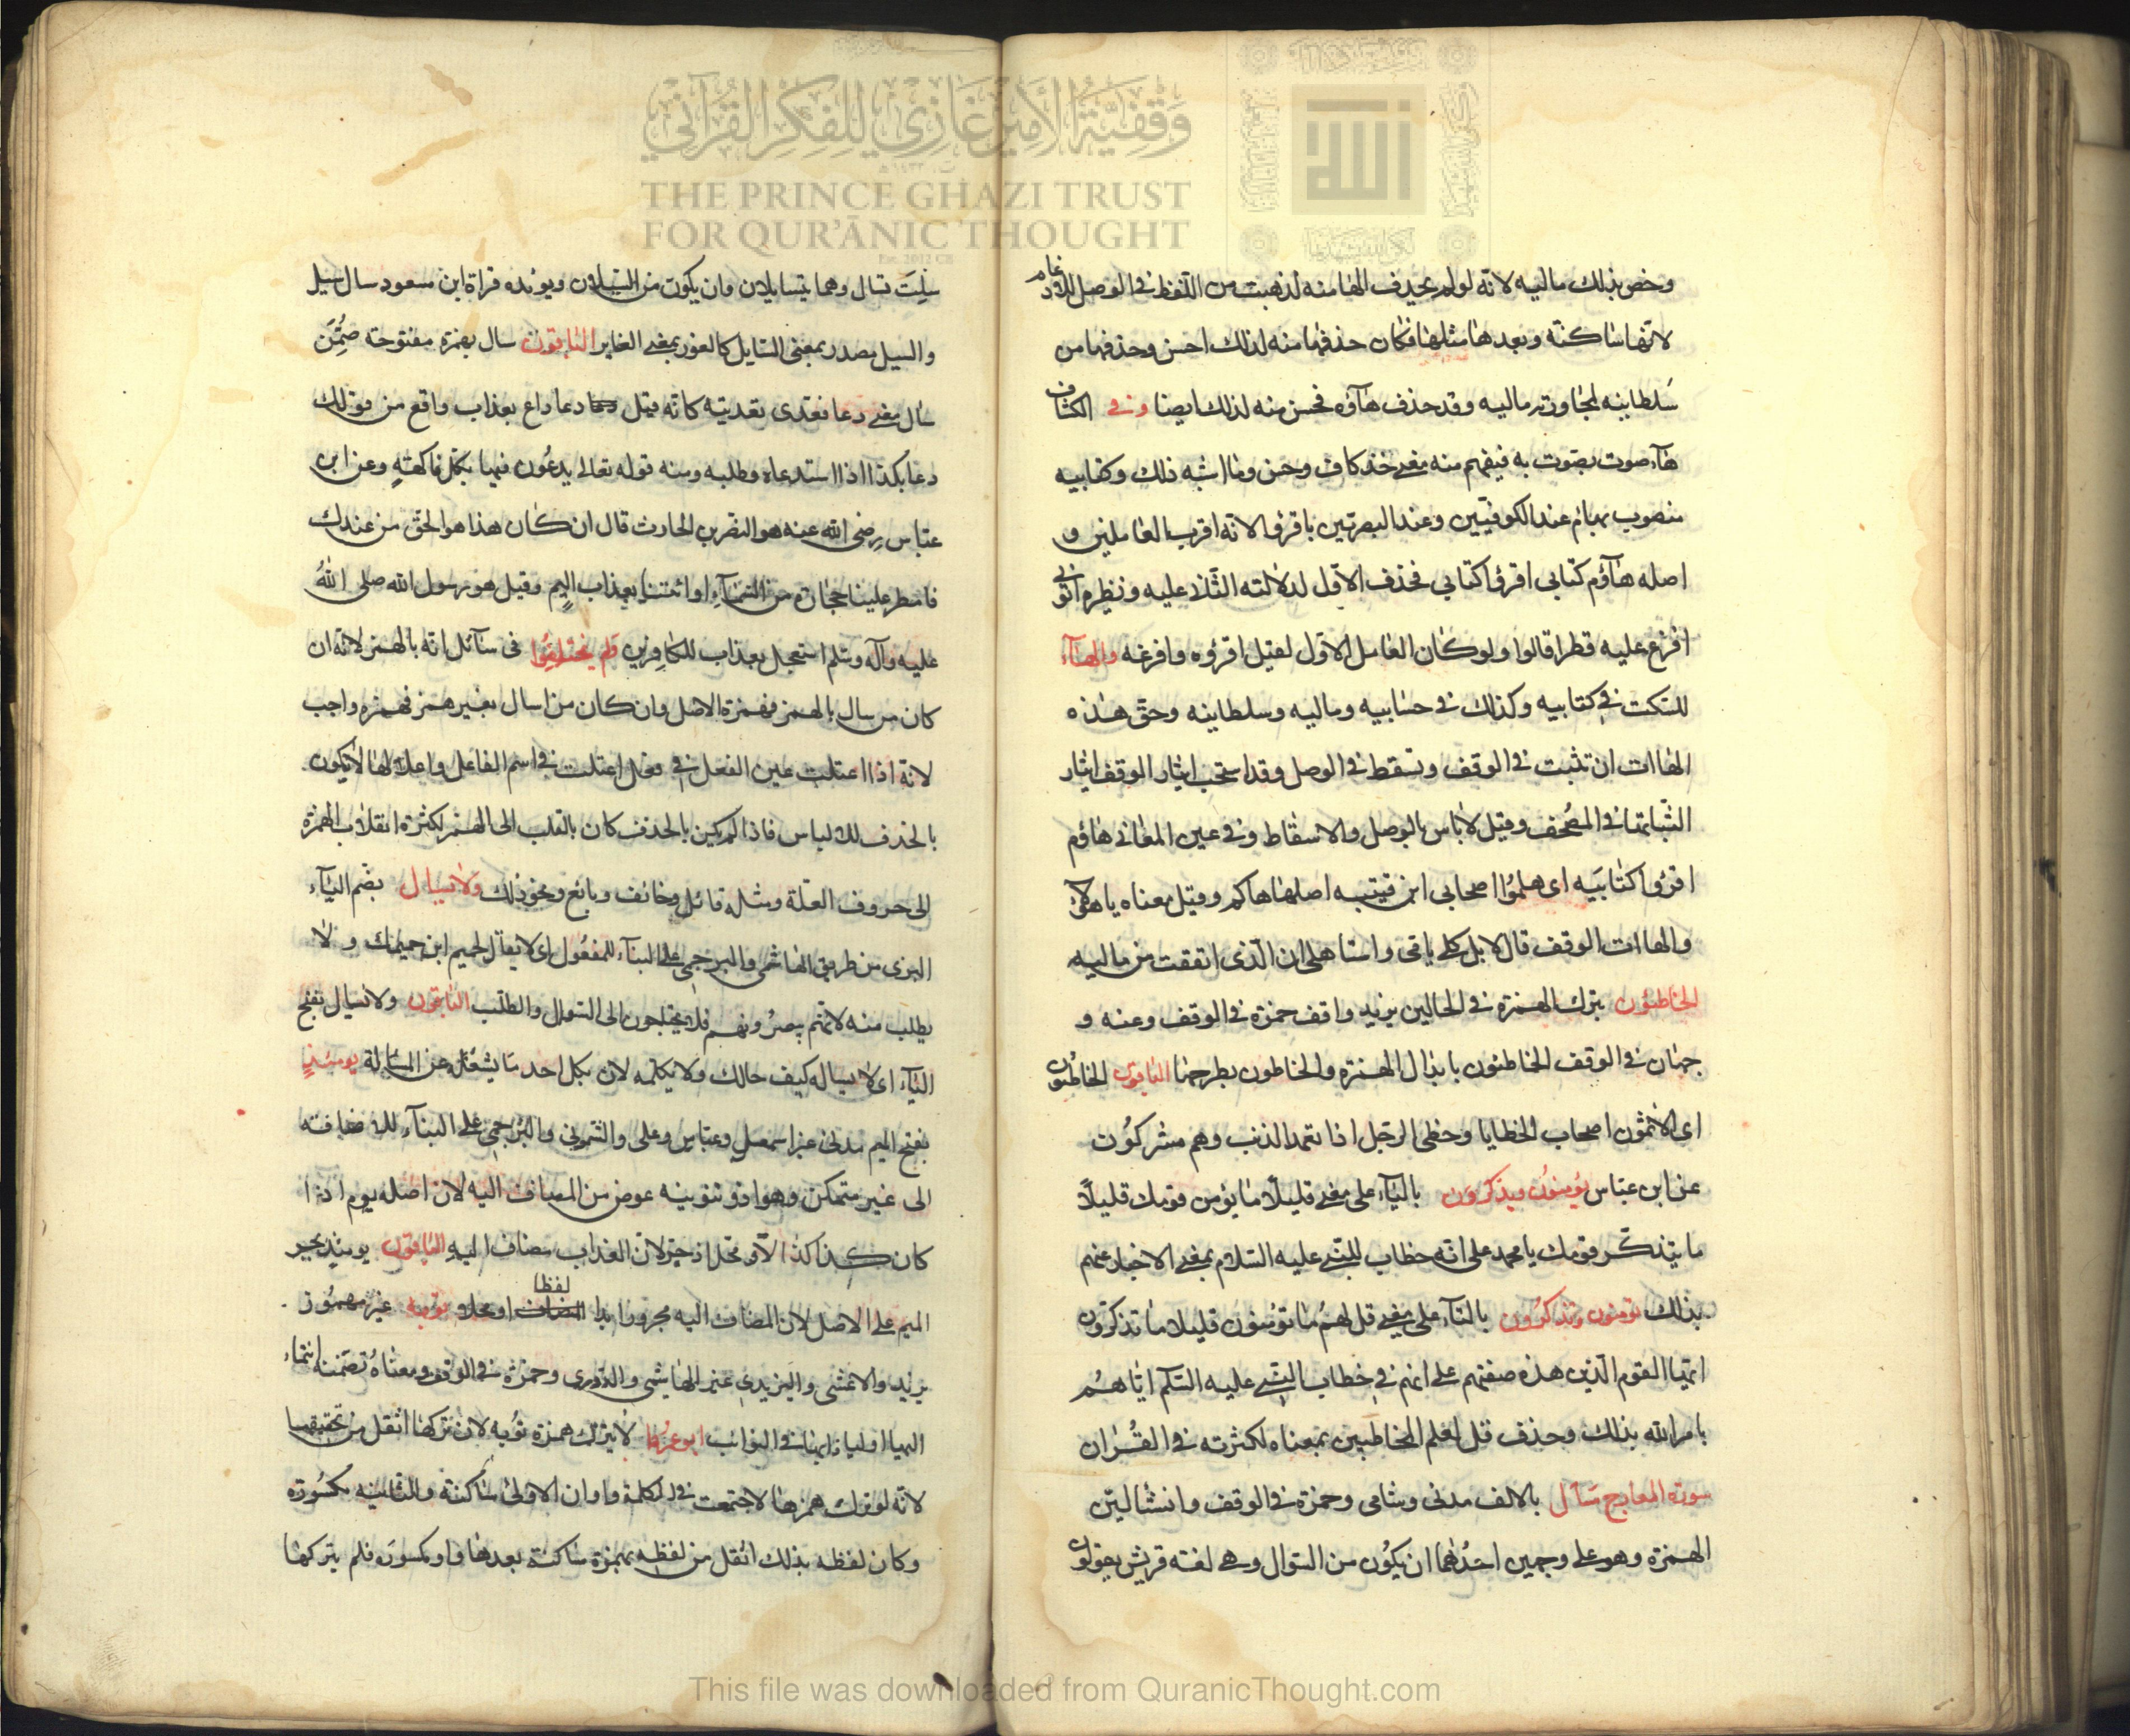 وخص بذلك ماليه لانه لو لم يحذف الها منه لذهبت من اللفظ في الوصل للادغام
لانها ساكنة وبعدها مثلها فكان حذفها منه لذلك احسن وحذفها من
سلطانيه لمجاورته ماليه وقد حذف هاؤه فحسن منه لذلك ايضا وفي الكشاف
هآء صوت يصوت به فيفهم منه معنى خذ كاف وحس وما اشبه ذلك وكتابيه
منصوب بهاؤم عند الكوفيين وعند البصريين باقرؤا لانه اقرب العاملين و
اصله هآؤم كتابي اقرؤا كتابي فحذف الاول لدلالته الثاني عليه ونظيره اتوني
افرغ عليه قطرا قالوا ولو كان العامل الاول لقيل اقرؤه وافرغه والهآء
للسكت في كتابيه وكذلك في حسابيه وماليه وسلطانيه وحق هذه
الهاات ان تثبت في الوقف وتسقط في الوصل وقد استحب ايثار الوقف ايثار
الثباتها في المصحف وقيل لا باس بالوصل والاسقاط وفي عين المعاني هاؤم
اقرؤا كتابيه اى هلموا اصحابي ابن قتيبه اصلها هاكم وقيل معناه يا هؤلاء
والهاات الوقف قال لا بل كلي باقي واستاهلي ان الذى انفقت من ماليه
الخاطئون بترك الهمزة في الحالين يزيد واقف حمزة في الوقف وعنه و
جهان في الوقف الخاطئون بابدال الهمزه والخاطون بطرحها الباقون الخاطئون
اى الاثمون اصحاب الخطايا وخطى الرجل اذا تعمد الذنب وهم مشركون
عن ابن عباس يؤمنون ويذكرون باليآء على معنى قليلا ما يؤمن قومك قليلا
ما يتذكر قومك يا محمد على انه خطاب للنبي عليه السلام بمعنى الاخبار عنهم
بذلك تومنون وتذكرون بالتآء على معنى قل لهم ما تؤمنون قليلا ما تذكرون
ايها القوم الذين هذه صفتهم على انهم في خطاب النبي عليه السلم اياهم
بامر الله بذلك وحذف قل لعلم المخاطبين بمعناه لكثرته في القران
سورة المعارج سال بالالف مدني وشامي وحمزة في الوقف وانشا ليّن
الهمزة وهو على وجهين احدهما ان يكون من السوال وهي لغته قريش يقولون
سلت تسال وهما يتسايلان وان يكون من السيلان ويؤنده قراة ابن مسعود سال سيل
والسيل مصدر بمعنى السايل كالغور بمعنى الغاير الباقون سال بهمزة مفتوحة ضمن
سال معنى دعا فعدى تعديته كانه قيل دعا داع بعذاب واقع من قولك
دعا بكذا اذا استدعاه وطلبه ومنه قوله تعالى يدعون فيها بكل فاكهة وعن ابن
عباس رضى الله عنه هو النضر بن الحارث قال ان كان هذا هو الحق من عندك
فامطر علينا حجارة من السمآء او ائتنا بعذاب اليم وقيل هو رسول الله صلى الله
عليه وآله وسلم استعجل بعذاب للكافرين ولم يختلفوا في سآئل انه بالهمز لانه ان
كان من سال بالهمز فهمزة الاصل وان كان من اسال بغير همز فهمزه واجب
لانه اذا اعتلت عين الفعل في فعل اعتلت في اسم الفاعل واعلالها لا يكون
بالحذف للالباس فاذا لم يكن بالحذف كان بالقلب الى الهمز لكثرة انقلاب الهمزة
الى حروف العلة ومثله قائل وخائف وبائع ونحو ذلك ولا يسال بضم اليآء
البزى من طريق الهاشمي والبرجمي على البنآء للمفعول اى لا يقال لحميم اين حميمك ولا
يطلب منه لانهم يبصرونهم فلا يحتاجون الى السوال والطلب الباقون ولا يسال بفتح
اليآء اى لا يساله كيف حالك ولا يكلمه لان بكل احد ما يشغله عن المسايلة يومئذ
بفتح الميم مدني غير اسمعيل وعباس وعلى والشموني والبرجمي على البنآء للاضافته
الى غير متمكن وهو اذ وتنوينه عوض من المضاف اليه لان اصله يوم اذ ا
كان كذا كذا الباقون يومئذ بجر
الميم على الاصل لان المضاف اليه مجرور ابدا لفظا او محلا وتؤيه غير مهموز
يزيد والاعشى واليزيدى عنه الهاشمي والدورى وحمزة في الوقف ومعناه تضمنه انتماء
اليها ابو عمرو لا يترك همزة تؤيه لان تركها اثقل من تحقيقها
لانه لو ترك همزها لاجتمعت في الكلمة واوان الاولى ساكنة والثانيه مكسورة
وكان لفظه بذلك اثقل من لفظه بهمزة ساكنة بعدها واو مكسوره فلم يتركها
وقفية الأمير غازي للفكر القرآني
THE PRINCE GHAZI TRUST
FOR QUR'ĀNIC THOUGHT
Est. 2012 CE
This file was downloaded from QuranicThought.com